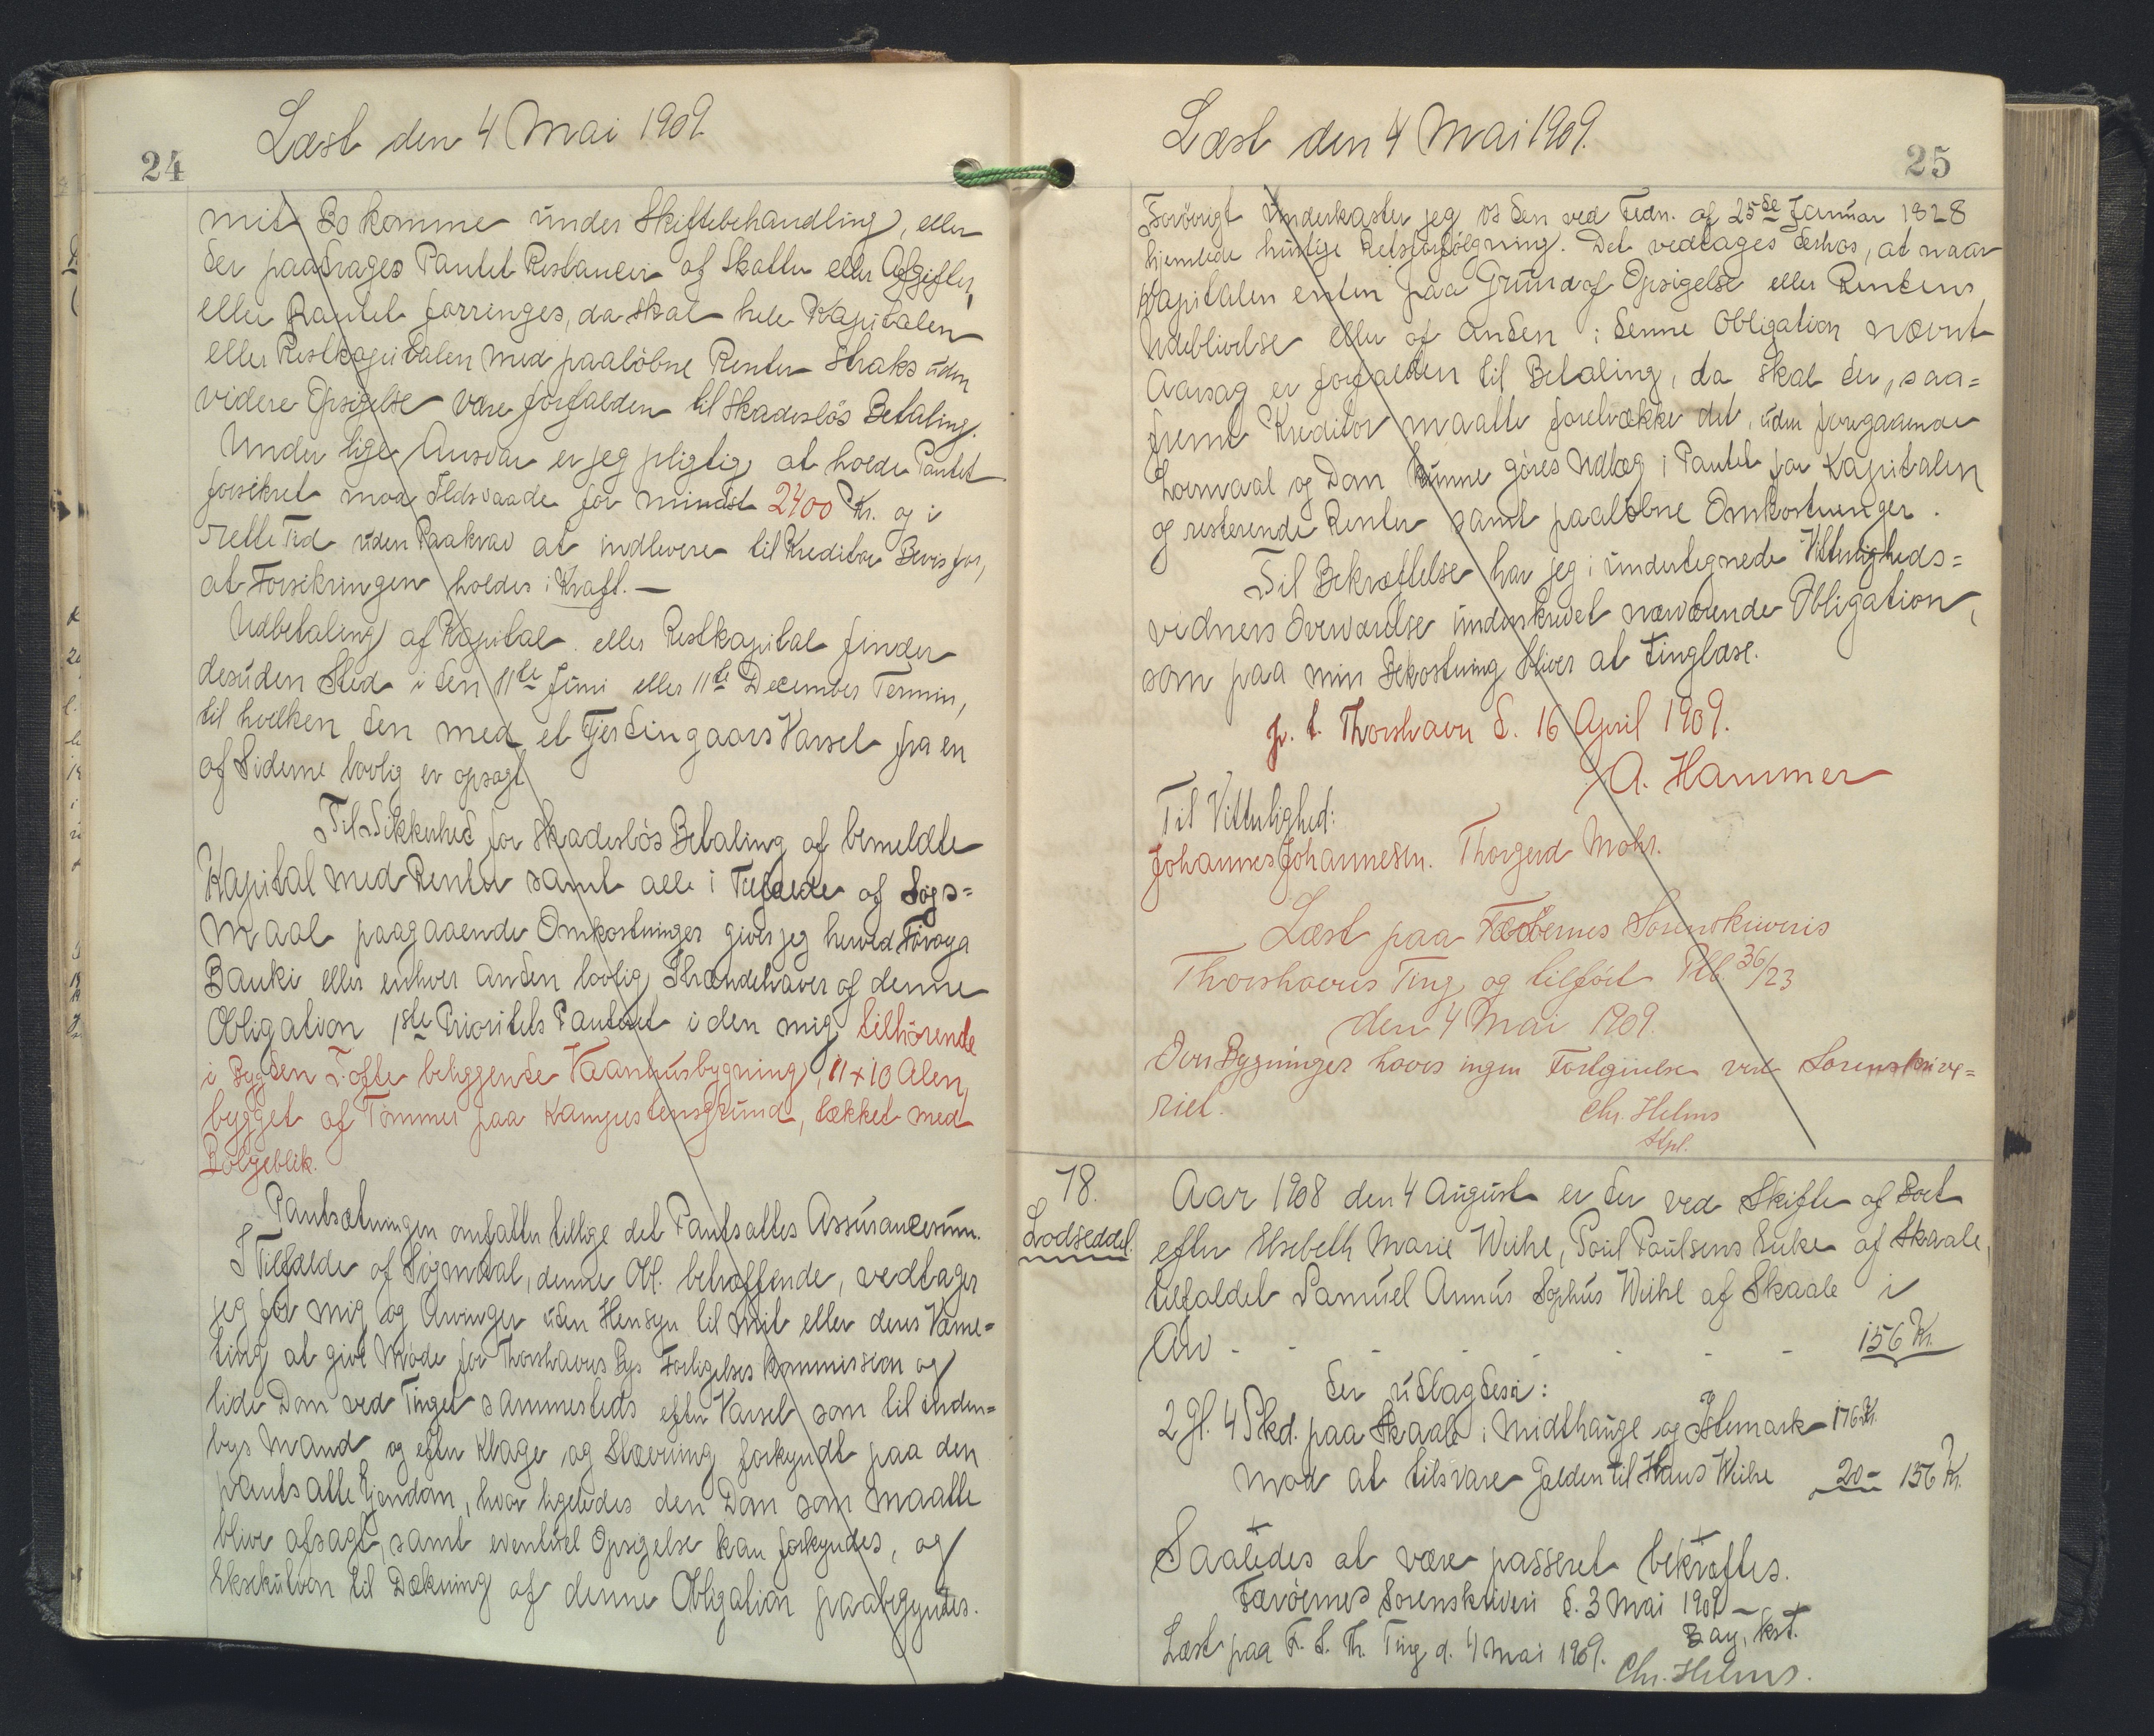 24
Læst den 4 Mai 1909.
mit Bo komme under Skiftebehandling, eller
der paadrages Pantet Restancer af Skatter eller Afgifter,
eller Pantet forringes, da skal hele Kapitalen
eller Restkapitalen med paaløbne Renter straks uden
videre Opsigelse være forfalden til skadesløs Betaling.
Under lige Ansvar er jeg pligtig at holde Pantet
forsikret mod Ildsvaade for mindst 2400 Kr. og i
rette Tid uden Paakrav at indlevere til Kreditor Bevis for,
at Forsikringen holdes i Kraft. —
Udbetaling af Kapital eller Restkapital finder
desuden Sted i den 11te Juni eller 11te December Termin,
til hvilken den med et Fjerdingaars Varsel fra en
af Siderne lovlig er opsagt.
Til Sikkerhed for skadesløs Betaling af bemeldte
Kapital med Renter samt alle i Tilfælde af Søgs=
maal paagaaende Omkostninger giver jeg herved Føroya
Banki eller enhver anden lovlig Ihændehaver af denne
Obligation 1ste Prioritets Panteret i den mig tilhørende
i Bygden Tofte beliggende Vaanhusbygning, 11 x 10 Alen,
bygget af Tømmer paa Kampestensgrund, tækket med
Bølgeblik.
Pantsætningen omfatter tillige det Pantsattes Assurancesum.
I Tilfælde af Søgsmaal, denne Obl. betræffende, vedtager
jeg for mig og Arvinger uden Hensyn til mit eller deres Værne=
ting at give Møde for Thorshavns Bys Forligelses Kommission og
lide Dom ved Tinget sammesteds efter Varsel som til inden=
bys Mand og efter Klage og Stævning forkyndt paa den
pantsatte Ejendom, hvor ligeledes den Dom som maatte
blive afsagt, samt eventuel Opsigelse kan forkyndes, og
Eksekution til Dækning af denne Obligation paabegyndes.
Læst den 4 Mai 1909.
25
Forøvrigt underkaster jeg os den ved Frdn. af 25de Januar 1828
hjemlede hurtige Retsforfølgning. Det vedtages derhos, at naar
Kapitalen enten paa Grund af Opsigelse eller Rentens
Udeblivelse eller af anden i denne Obligation nævnt
Aarsag er forfalden til Betaling, da skal der, saa=
fremt Kreditor maatte foretrække det, uden foregaaende
Lovmaal og Dom kunne gøres Udlæg i Pantet for Kapitalen
og resterende Renter samt paaløbne Omkostninger.
Til Bekræftelse har jeg i undertegnede Vitterligheds=
vidners Overværelse underskrevet nærværende Obligation,
som paa min Bekostning bliver at tinglæse.
p. t. Thorshavn d. 16 April 1909.
A. Hammer
Til Vitterlighed:
Johannes Johannesen. Thorgerd Mohr.
Læst paa Færøernes Sorenskriveris
Thorshavns Ting og tilført Plb. 36/23
den 4 Mai 1909.
Over Bygninger haves ingen Fortegnelse ved Sorenskrive=
riet.
Chr. Helms
Stpl.
18.
Lodseddel.
Aar 1908 den 4 August er der ved Skifte af Boet
efter Elsebeth Marie Weihe, Poul Poulsens Enke af Skaale,
tilfaldet Samuel Annus Sophus Weihe af Skaale i
Arv - - - - - - - 156 Kr.
der udlagdes i:
2 Gl. 4 Skd. paa Skaale i Midthauge og Ytstemark 176 Kr.
mod at tilsvare Gælden til Hans Weihe 20 - 156 Kr.
Saaledes at være passeret bekræftes.
Færøernes Sorenskriveri d. 3 Mai 1909 —
Bay, kst.
Læst paa F. S. Th. Ting d. 4 Mai 1909.
Chr. Helms.